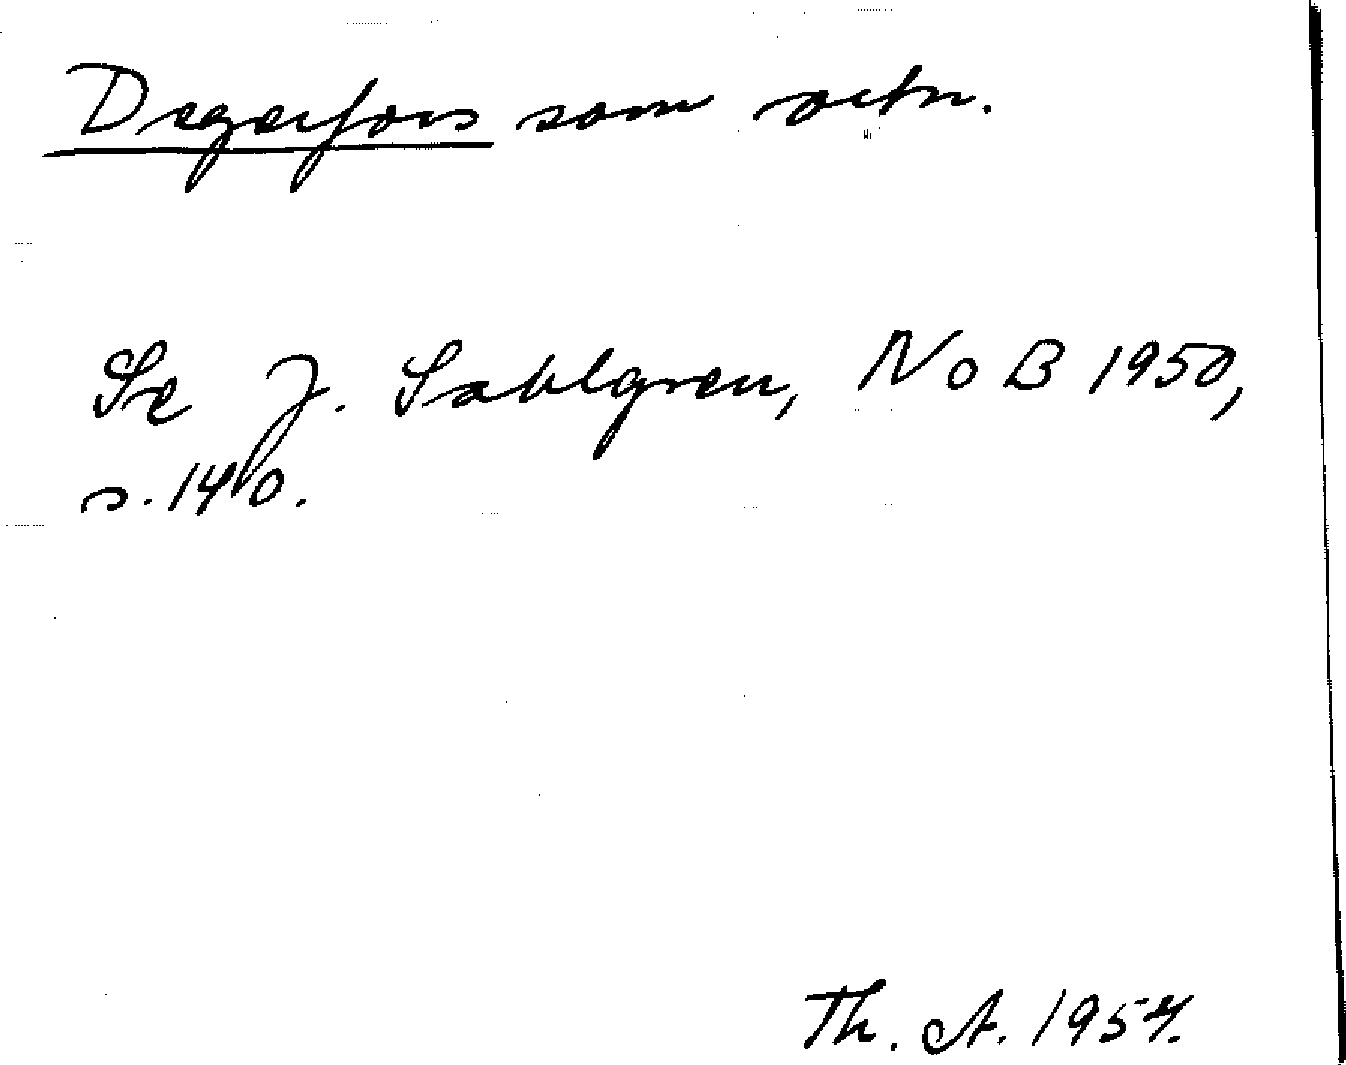 Degerfors som ortn.
Se J. Sahlgren, NoB 1950,
s. 140.
Th. A. 1957.